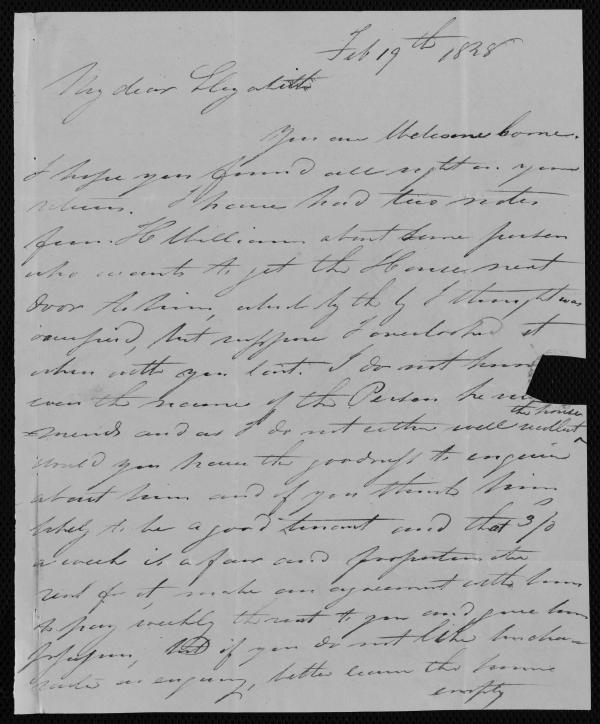 Feb 19th 1828
My dear Elizabeth
You are Welcome home.
I hope you found all right on your
return. I have had two notes
from H Williams about some person
who wants to get the House next
door to him, which by the by I thought was
occupied, but suppose I overlooked it
when with you last. I do not know
even the name of the Person he recom
=mends and as I do not either well recollect the house
would you have the goodness to enquire
about him and if you think him
likely to be a good tenant and that 3/0
a week is a fair and proportionate
rent for it, make an agreement with him
to pay weekly the rent to you and give him
possession, but if you do not like his cha=
racter on enquiry, better leave the house
empty